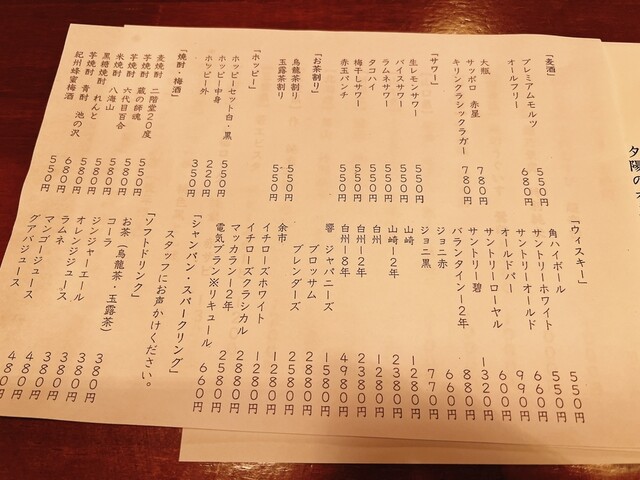 「麦酒」
プレミアムモルツ 550円
オールフリー 680円
大瓶
サッポロ 赤星 780円
キリンクラシックラガー 780円
「サワー」
生レモンサワー 550円
バイスサワー 550円
ラムネサワー 550円
タコハイ 550円
梅干しサワー 550円
赤玉パンチ 550円
「お茶割り」
烏龍茶割り 550円
玉露茶割り 550円
「ホッピー」
ホッピーセット白・黒 550円
ホッピー中身 220円
ホッピー外 350円
「焼酎・梅酒」
麦焼酎 二階堂20度 550円
芋焼酎 蔵の師魂 580円
芋焼酎 六代目百合 580円
米焼酎 八海山 580円
黒糖焼酎 れんと 580円
芋焼酎 青酎 池の沢 680円
紀州蜂蜜梅酒 550円
「ウィスキー」
角ハイボール 550円
サントリーホワイト 550円
サントリーオールド 660円
オールドパー 990円
サントリーローヤル 600円
サントリー碧 1320円
バランタイン12年 880円
ジョニ赤 660円
ジョニ黒 770円
山崎 1280円
山崎12年 2380円
白州 1280円
白州12年 2380円
白州18年 4980円
響 ジャパニーズ 1580円
ブロッサム 2880円
ブレンダーズ 2580円
余市 1280円
イチローズホワイト 1280円
イチローズクラシカル 2880円
マッカラン12年 2580円
電気ブラン※リキュール 660円
「シャンパン・スパークリング」
スタッフにお声かけください。
「ソフトドリンク」
お茶（烏龍茶・玉露茶） 380円
コーラ 380円
ジンジャーエール 380円
オレンジジュース 380円
ラムネ 380円
マンゴージュース 480円
グアバジュース 480円
夕陽の